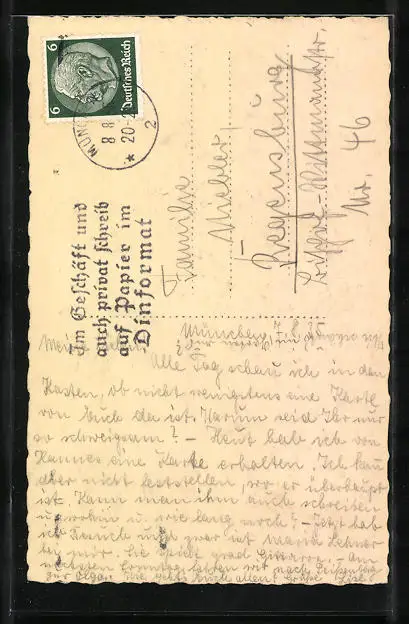 6 6
Deutsches Reich
MÜN
8 8
20-
2
Im Geschäft und
auch privat schreib
auf Papier im
Dinformat
Familie
Regensburg
Nr. 46
München, 7.8.35
Alle Tag schau ich in den
Kasten, ob nicht wenigstens eine Karte
von Euch da ist. Warum seid Ihr nur
so schweigsam? – Heut hab ich von
Hannes eine Karte erhalten. Ich kann
aber nicht feststellen, wo er überhaupt
ist. Kann man ihm auch schreiben
u. wohin u. wie lang noch? – Jetzt hab
ich Besuch und zwar ist Maria Lehner
bei mir. Sie spielt grad Gittarre. – Am
nächsten Sonntag fahren wir nach Peißenberg
zur Olga. Wie geht's Euch allen? Grüße